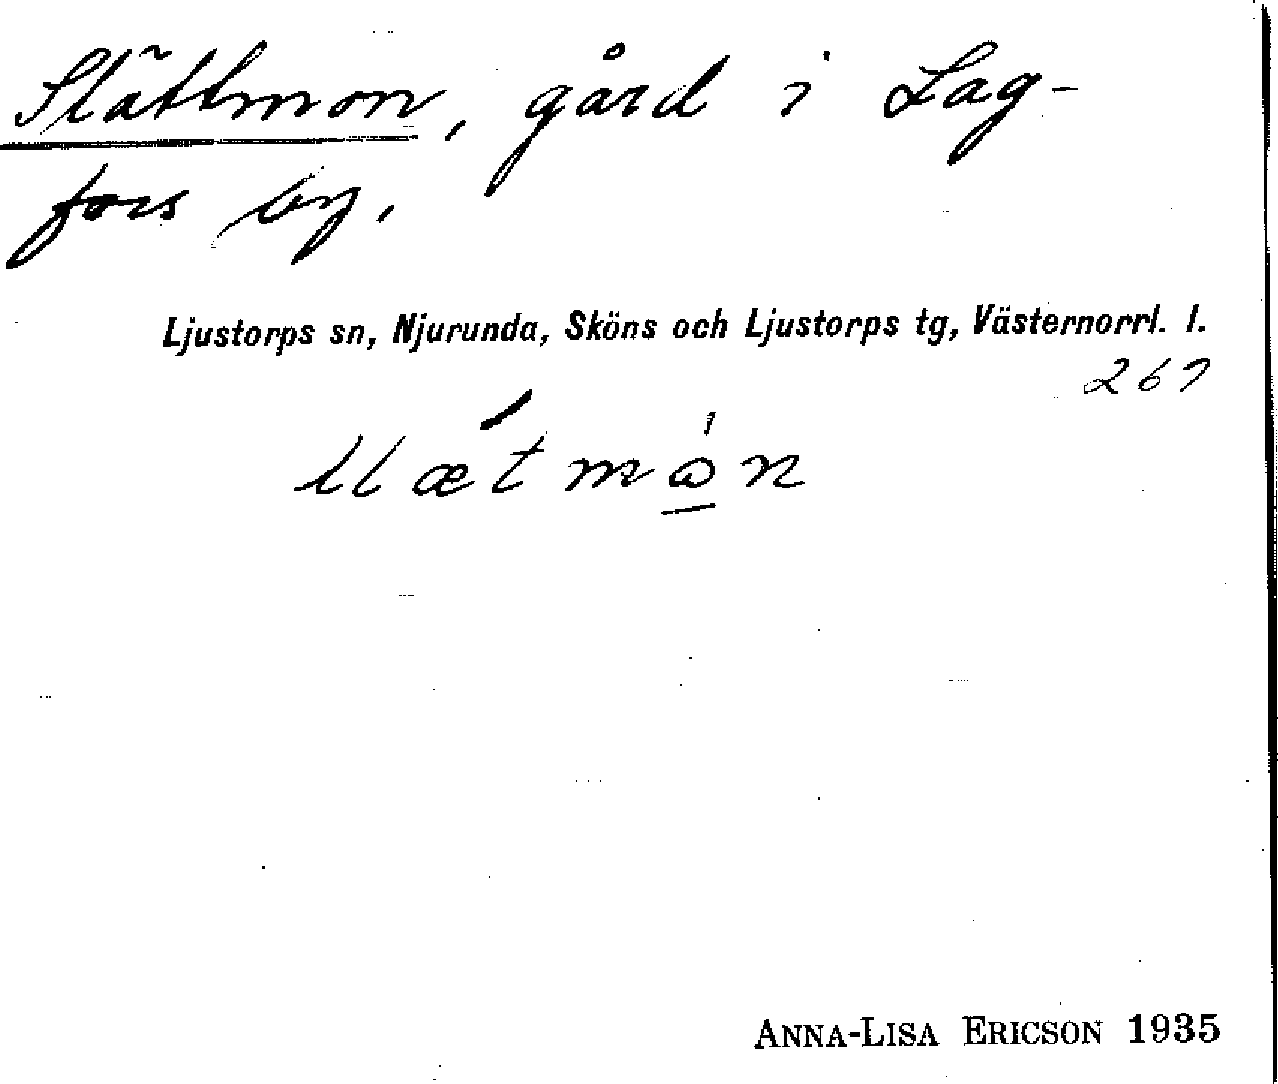 Slättmon, gård i Lag-
fors by.
Ljustorps sn, Njurunda, Sköns och Ljustorps tg, Västernorrl. l.
267
ANNA-LISA ERICSON 1935